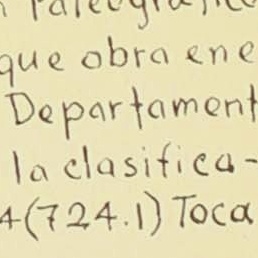 n Paleográfico
que obra en e
Department
la clasifica-
4(724.1) Toca